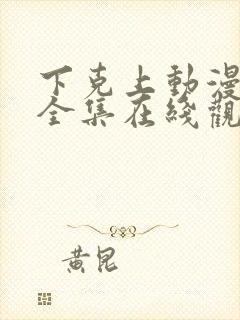 下克上動漫
全集在綫觀
黃昆